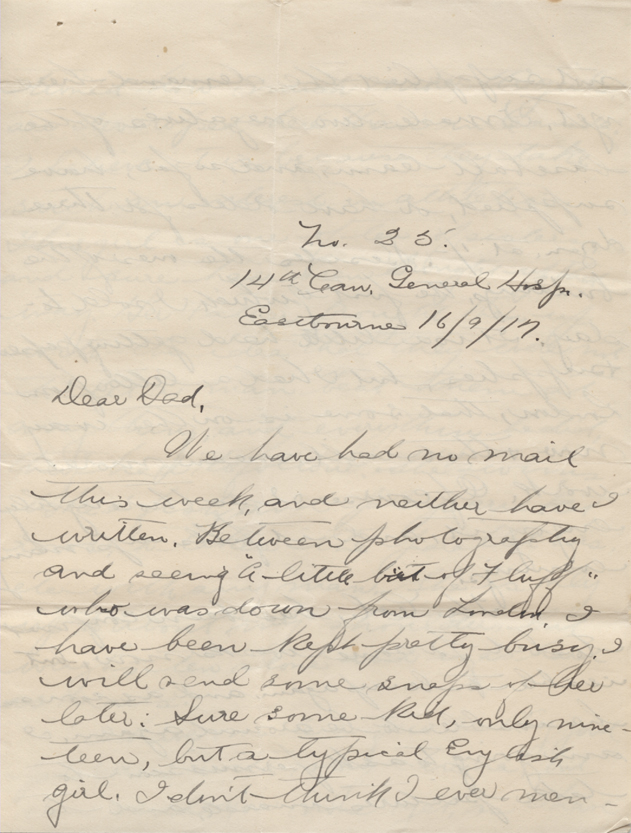 No. 35.
14th Can. General Hosp.
Eastbourne 16/9/17.
Dear Dad,
We have had no mail
this week, and neither have I
written. Between photography
and seeing "A little bit of Fluff"
who was down from London, I
have been kept pretty busy. I
will send some snaps of her
later. Sure some kid, only nine-
teen, but a typical English
girl. I don't think I ever men-